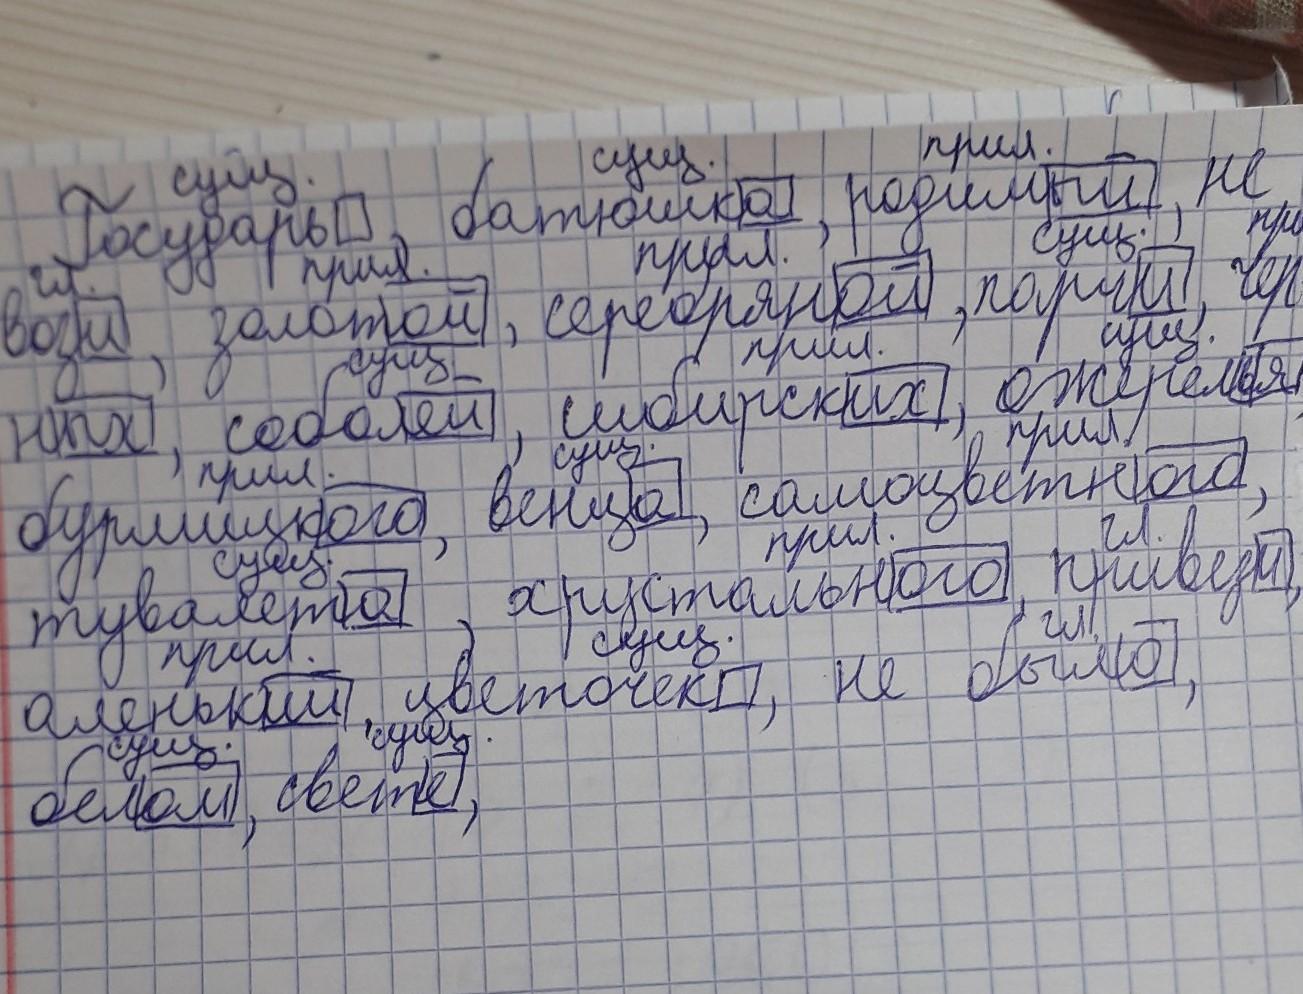 сущ. сущ. прил.
Государь, батюшка, родимый, не
гл. прил. прил. сущ. при
вози, золотой, серебряной, парчи, чер
сущ. прил. сущ.
ных, соболей, сибирских, ожерелья
прил. сущ. прил.
бурмицкого, венца, самоцветного,
сущ. прил. гл.
тувалета, хрустального, привези,
прил. сущ. гл.
аленький, цветочек, не было,
сущ. сущ.
белом, свете,